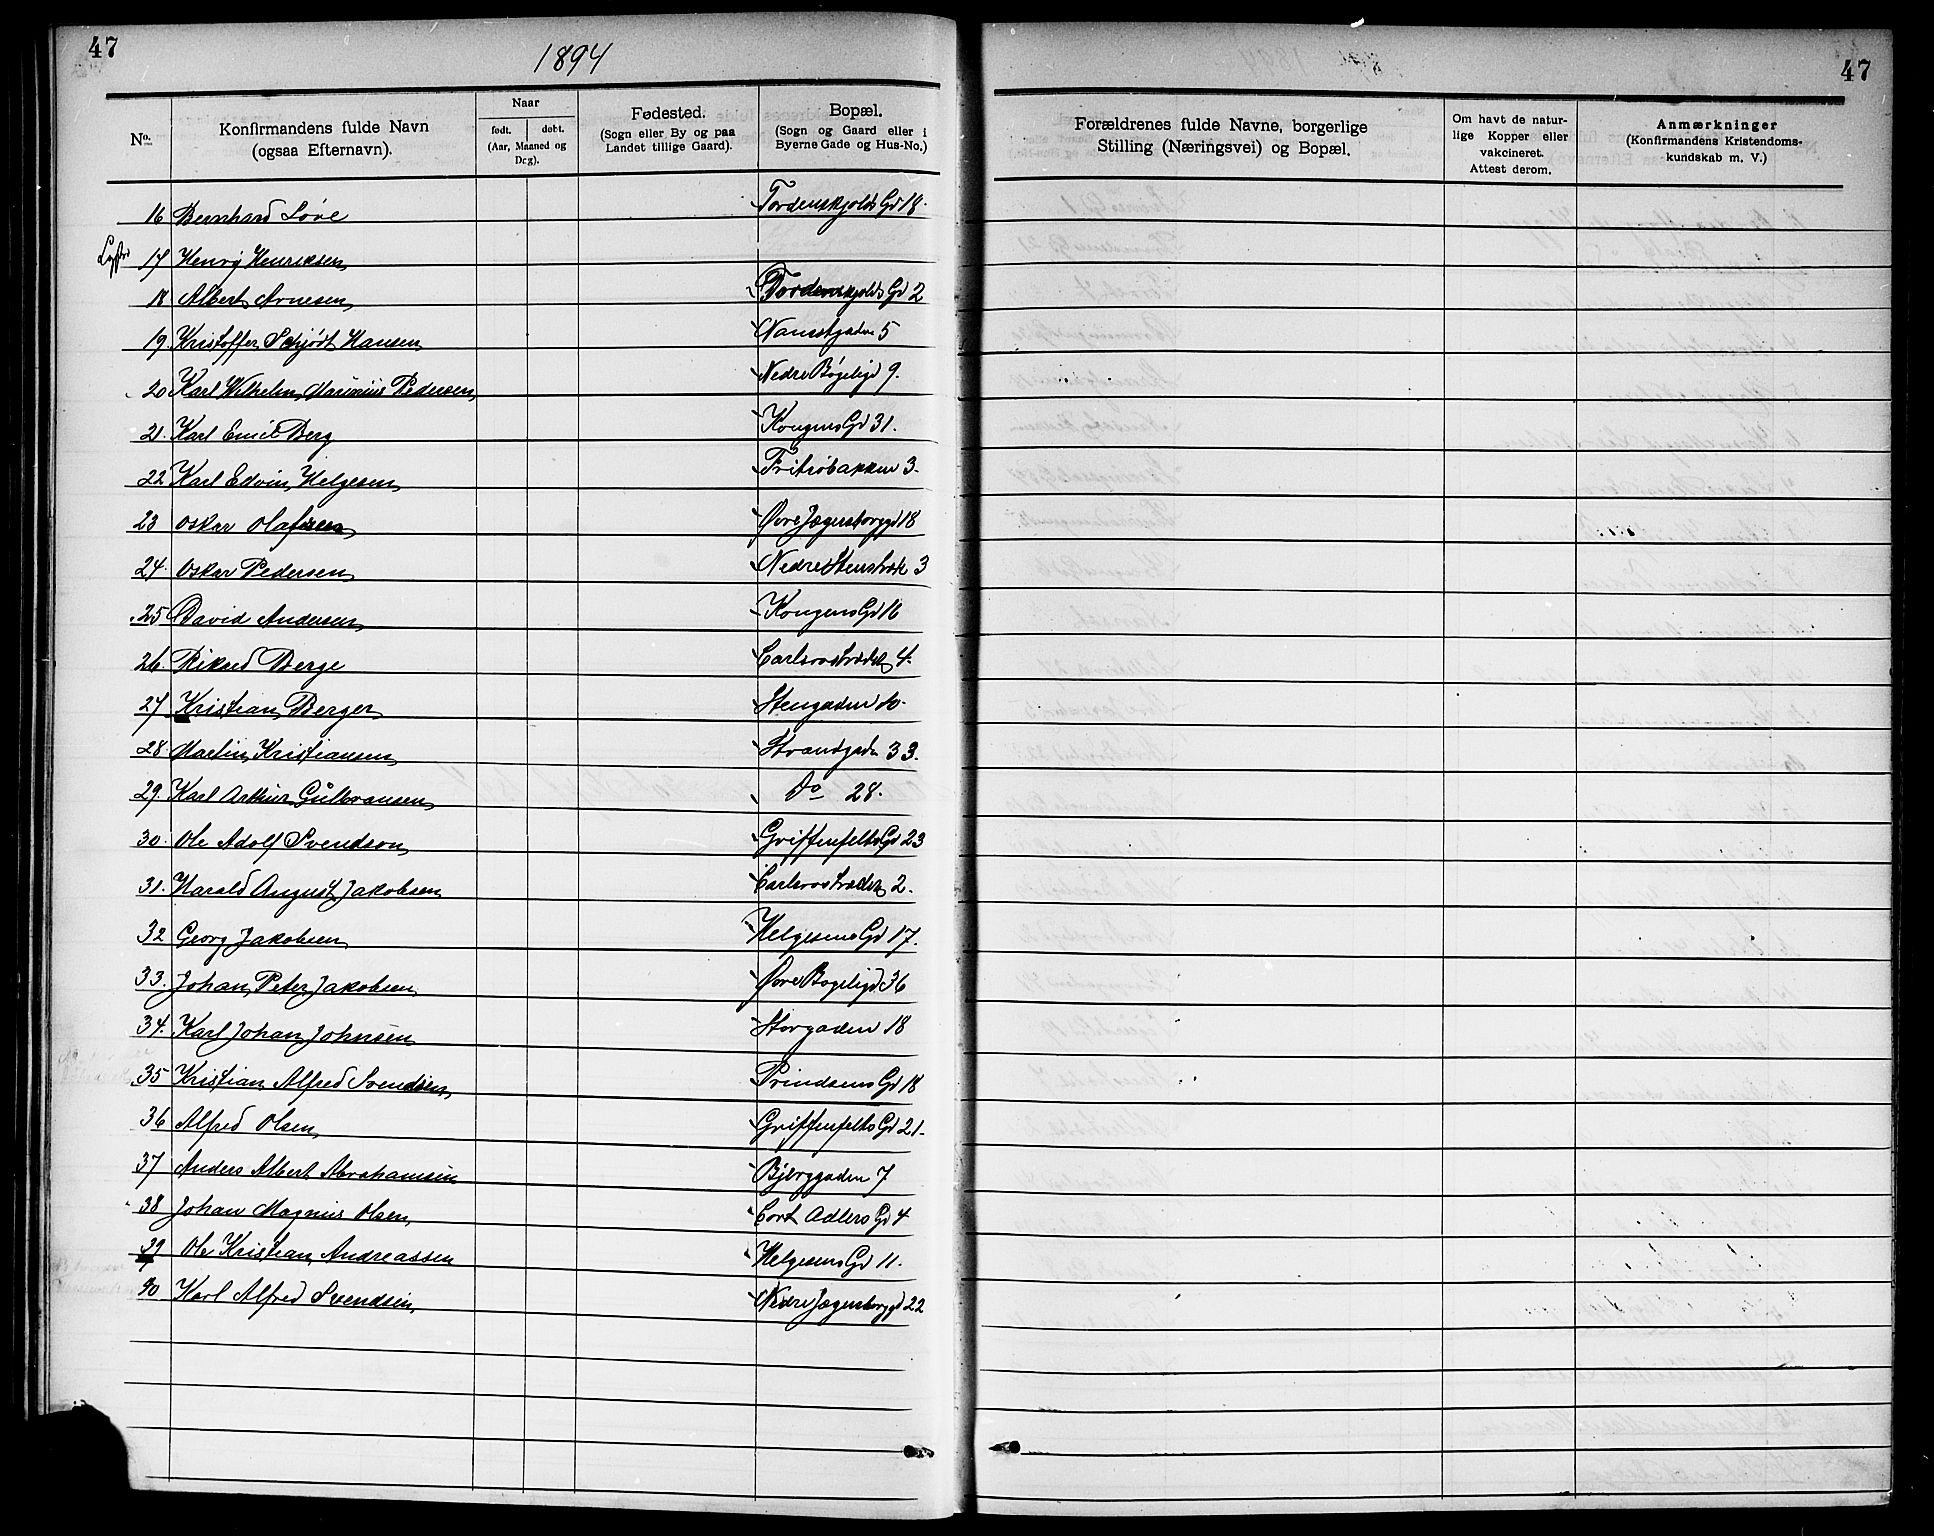 47
1894
No.
Konfirmandens fulde Navn
(ogsaa Efternavn).
Naar
født. døbt.
(Aar, Maaned og
Dag).
Fødested.
(Sogn eller By og paa
Landet tillige Gaard).
Bopæl.
(Sogn og Gaard eller i
Byerne Gade og Hus-No.)
16 Bernhard Løve Tordenskjolds Gd 18.
17 Henry Henriksen
18 Albert Arnesen Tordenskjolds Gd 2
19. Kristoffer Schjødt Hansen Nansetgaden 5
20 Karl Wilhelm Marinius Pedersen Nedre Bøgeligd 9.
21. Karl Emil Berg Kongens Gd 31.
22 Karl Edvin Helgesen Fritzøbakken 3.
23 Oskar Olafsen Øvre Jegersborggd 18
24. Oskar Pedersen Nedre Stenstræk 3
25 David Andersen Kongens Gd 16
26. Rikard Berge Carlsrostrædet 4.
27 Kristian Berger Stengaden 10.
28. Martin Kristiansen Strandgaden 33.
29. Karl Arthur Gulbransen Do 28.
30. Ole Adolf Svendson Griffenfelts Gd 23
31. Harald August Jakobsen Carlsrostrædet 2.
32 Georg Jakobsen Helgesens Gd 17.
33. Johan Peter Jakobsen Øvre Bøgeligd 36
34. Karl Johan Johnsen Storgaden 18
35 Kristian Alfred Svendsen Prindsens Gd 18
36 Alfred Olsen Griffenfelts Gd 21.
37 Anders Albert Abrahamsen Bjerggaden 7
38 Johan Magnus Olsen Cort Adlers Gd 4
39 Ole Kristian Andreassen Helgesens Gd 11.
40 Karl Alfred Svendsen Nedre Jegersborggd 22
47
Forældrenes fulde Navne, borgerlige
Stilling (Næringsvei) og Bopæl.
Om havt de natur-
lige Kopper eller
vakcineret.
Attest derom.
Anmærkninger
(Konfirmandens Kristendoms-
kundskab m. V.)